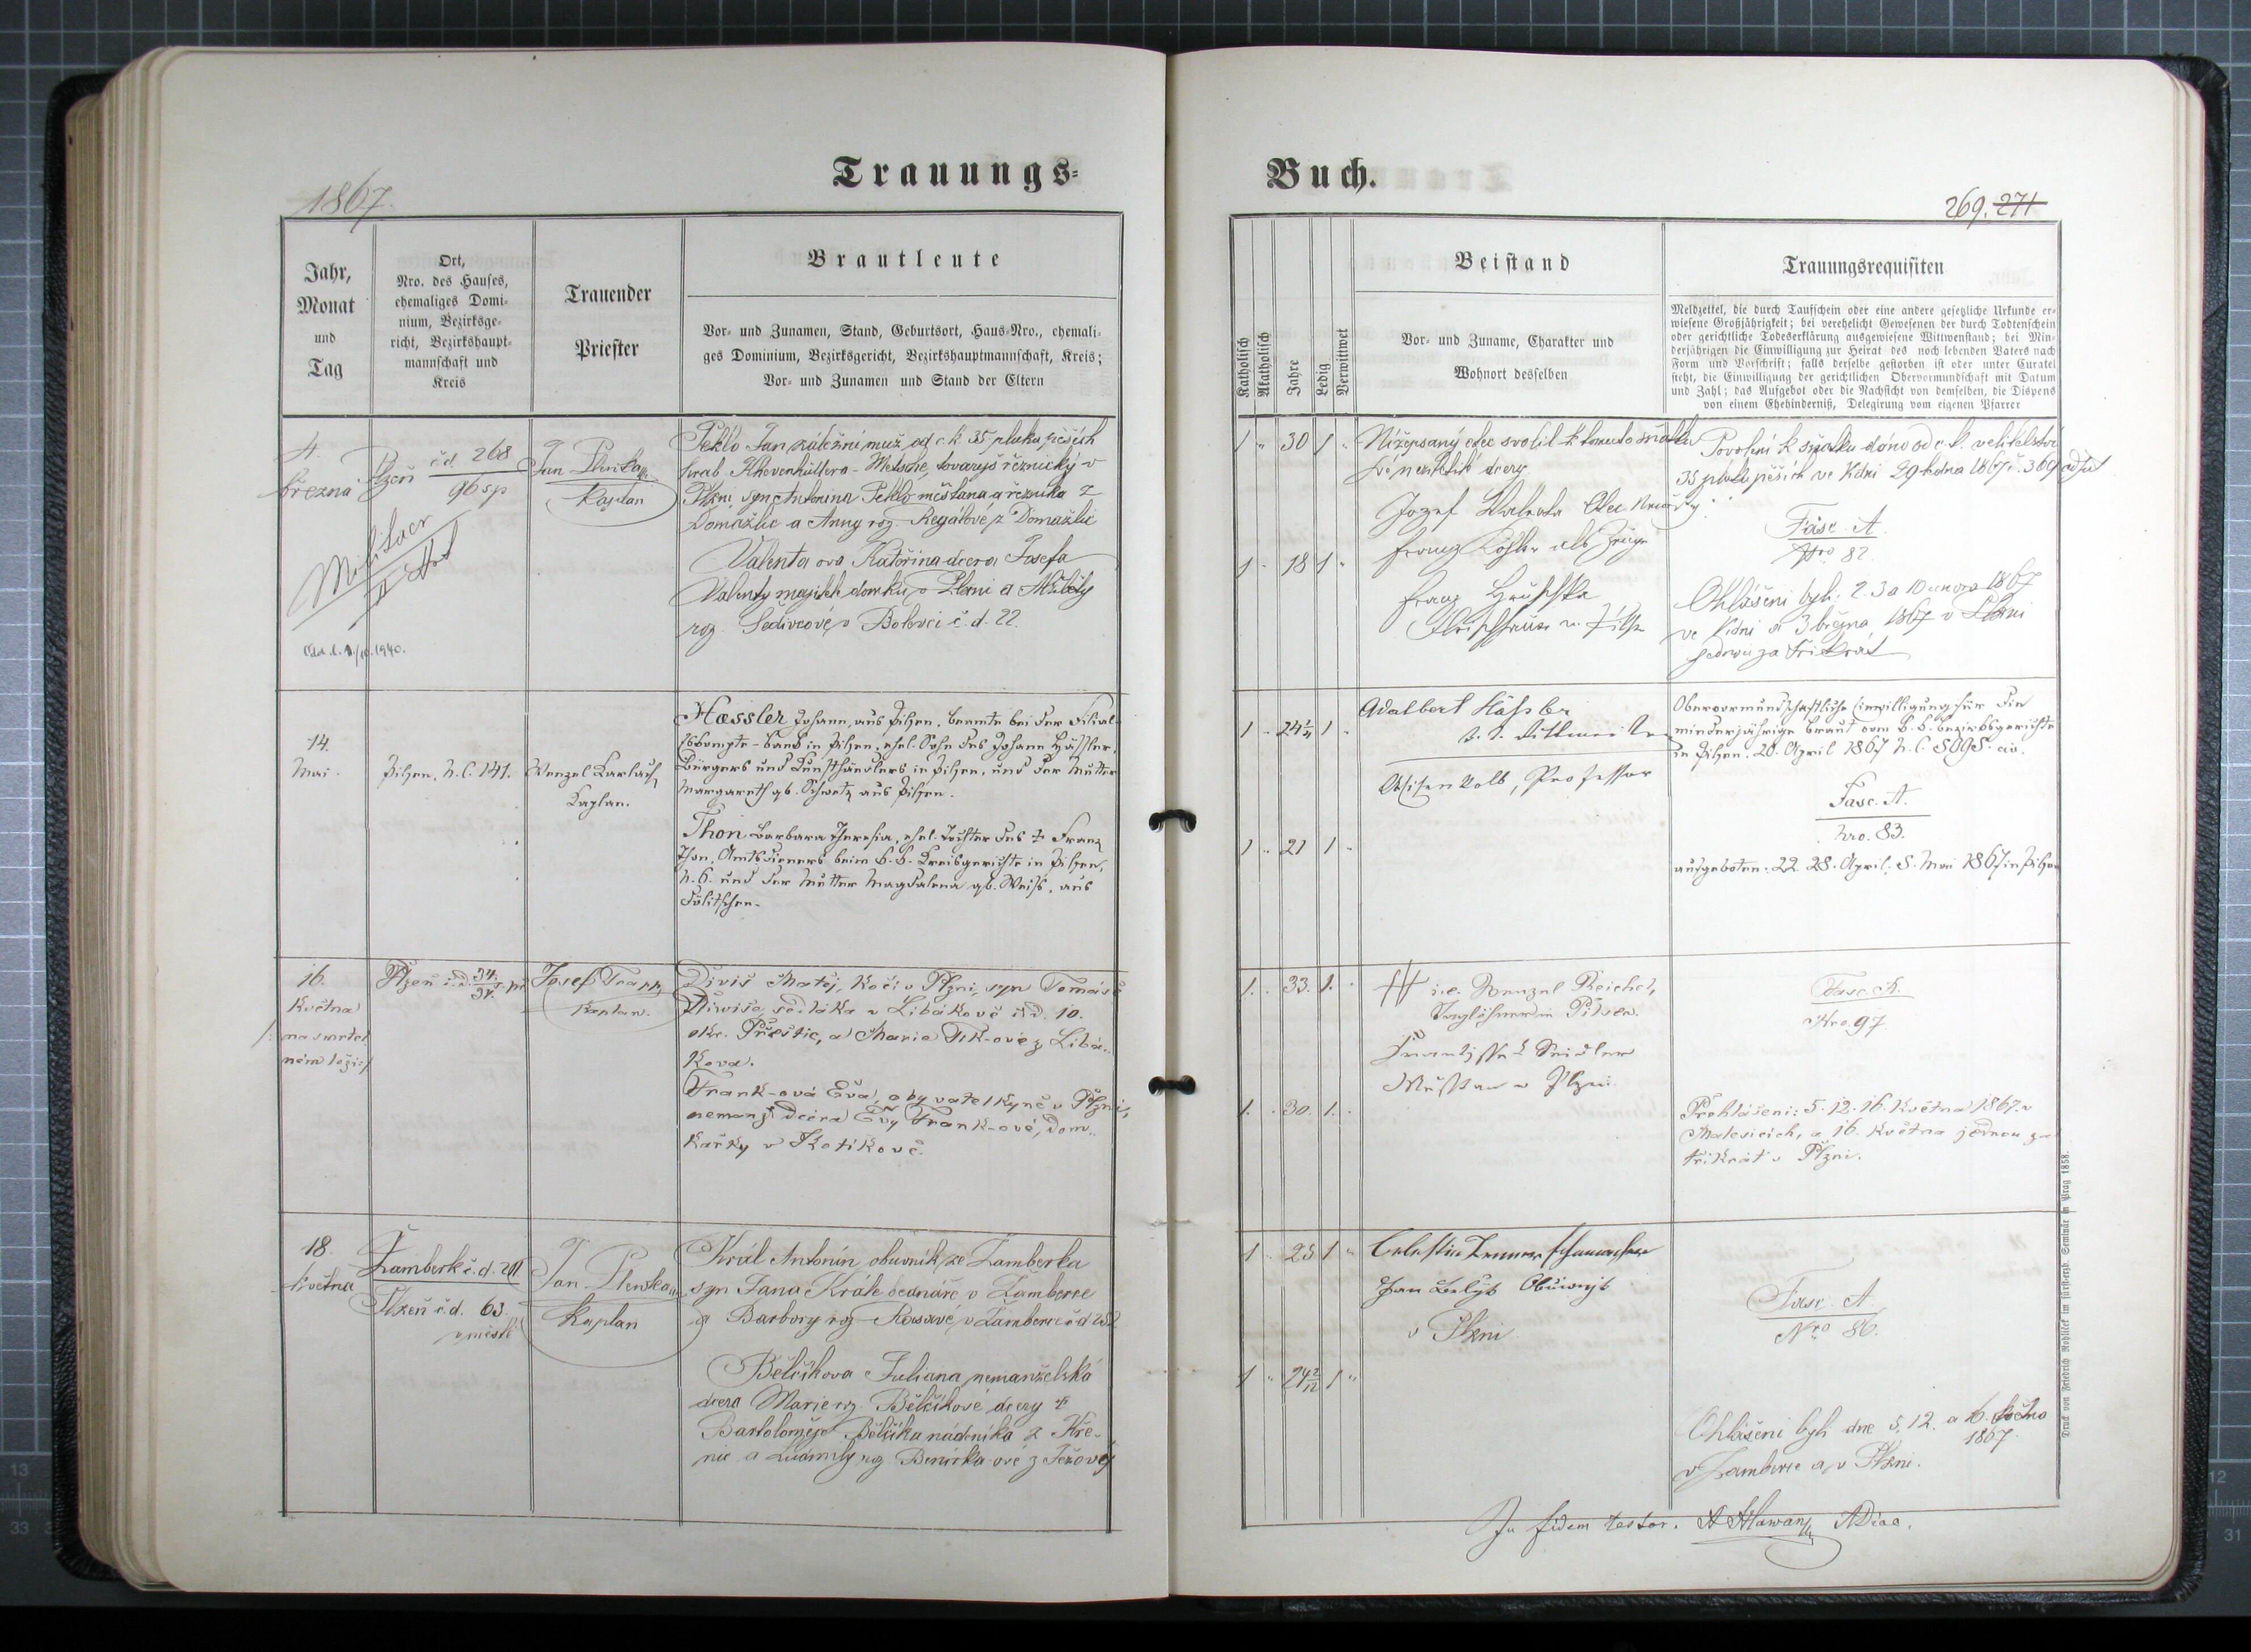 Trauungs-
1867.
Jahr,
Monat
und
Tag
Ort,
Nro. des Hauses,
ehemaliges Domi-
nium, Bezirksge-
richt, Bezirkshaupt-
mannschaft und
Kreis
Trauender
Priester
Brautleute
Vor- und Zunamen, Stand, Geburtsort, Haus-Nro., ehemali-
ges Dominium, Bezirksgericht, Bezirkshauptmannschaft, Kreis;
Vor- und Zunamen und Stand der Eltern
4.
března
Militaer
1940.
Plzeň č.d. 268
96 sp
Jan
Kaplan
Peklo Jan záložní muž od c. k. 35 pluku pěších
hrab. Khevenhüllera-Metsche, tovaryš řeznický v
Plzni, syn Antonína Pekla měšťana a řezníka z
Domažlic a Anny roz. Regálové z Domažlic
Valenta ova Kateřina dcera Josefa
Valenty majitele domku v Plzni a Alžběty
roz. Šedivcové v Bolevci č. d. 22.
14.
Mai.
Pilsen, N.C. 141.
Wenzel Karlasch
Kaplan.
Haessler Johann, aus Pilsen, Beamte bei der Filial-
Eskompte-Bank in Pilsen, ehel. Sohn des Johann Hässler,
Bürgers und Kunsthändlers in Pilsen, und der Mutter
Margareth gb. Schwetz aus Pilsen.
Thon Barbara Theresia, ehel. Tochter des † Franz
Thon, Amtsdieners beim k. k. Kreisgerichte in Pilsen,
N. 6. und der Mutter Magdalena gb. Weiß, aus
16.
Května
na smrtel
ném loži
Plzeň č.d. 34.
Josef
Kaplan.
Diviš Matěj, Kočí v Plzni, syn Tomáše
Diwiše, sedláka v Libákově čd. 10.
okr. Přeštic, a Marie z Libá-
kova.
Frank-ová Eva, obyvatelkyně v Plzni,
nemanž. dcera Evy Frank-ové, dom-
kařky v Kotíkově.
18.
května
Žamberk č. d. 211
Plzeň č.d. 63.
v městě
Jan
Kaplan
Král Antonín, obuvník ze Žamberka
syn Jana Krále bednáře v Žamberce
a Barbory roz. v Žamberce č d 252
Bělčíkova Juliana nemanželská
dcera Marie roz. Bělčíkové dcery †
Bartoloměje Bělčíka nádeníka z Kře-
nic a Ludmily roz. z Ježovy
Buch.
269. 271
Katholisch
Akatholisch
Jahre
Ledig
Verwittwet
Beistand
Vor- und Zuname, Charakter und
Wohnort desselben
Trauungsrequisiten
Meldzettel, die durch Taufschein oder eine andere gesetzliche Urkunde er-
wiesene Großjährigkeit; bei verehelicht Gewesenen der durch Todtenschein
oder gerichtliche Todeserklärung ausgewiesene Wittwenstand; bei Min-
derjährigen die Einwilligung zur Heirat des noch lebenden Vaters nach
Form und Vorschrift; falls derselbe gestorben ist oder unter Curatel
steht, die Einwilligung der gerichtlichen Obervormundschaft mit Datum
und Zahl; das Aufgebot oder die Nachsicht von demselben, die Dispens
von einem Ehehinderniß, Delegirung vom eigenen Pfarrer
1 " 30 1 "
1 " 18 1 "
Nížepsaný otec svolil k tomuto sňatku
své nezletilé dcery
Jozef Walenta Otec
Franz Köhler als Zeuge
Franz Hruschka
Povolení k sňatku dáno od c. k. velitelství
35 pluku pěších ve Vídni 29 ledna 1867 č. 369 adjut
Fasc. A
Nro 82.
Ohlášeni byli: 2. 3 a 10 února 1867
ve Vídni a 3 března 1867 v Plzni
jednou za třikrát
1 " 24 1/4 1 "
1 " 21 1 "
Adalbert Häßler
Professor
Obervormundschaftliche Einwilligung für die
minderjährige Braut vom k. k. Bezirksgerichte
in Pilsen. 20. April 1867 N. C 5095. civ.
Fasc. A.
Nro. 83.
aufgeboten: 22. 28. April, 5. Mai 1867 in Pilsen
1. " 33. 1. "
1. " 30. 1. "
+++ i.e. Wenzel Reichel,
Taglöhner in Pilsen.
Seidler
v Plzni.
Fasc. A.
Nro. 97.
Prohlášeni: 5. 12. 16. Května 1867 v
Malesicích, a 16. Května jednou za
třikrát v Plzni.
1 " 25 1 "
1 " 24 2/12 1 "
Celestin
Jan Obuwnjk
v Plzni
Fasc. A
Nro 86.
Ohlášeni byli dne 5, 12. a 16. května
1867
v Žamberce a v Plzni.
In fidem testor. A Hlawan
Druck von Friedrich Rohliček im fürsterzb. Seminär in Prag 1858.
13
33
12
31